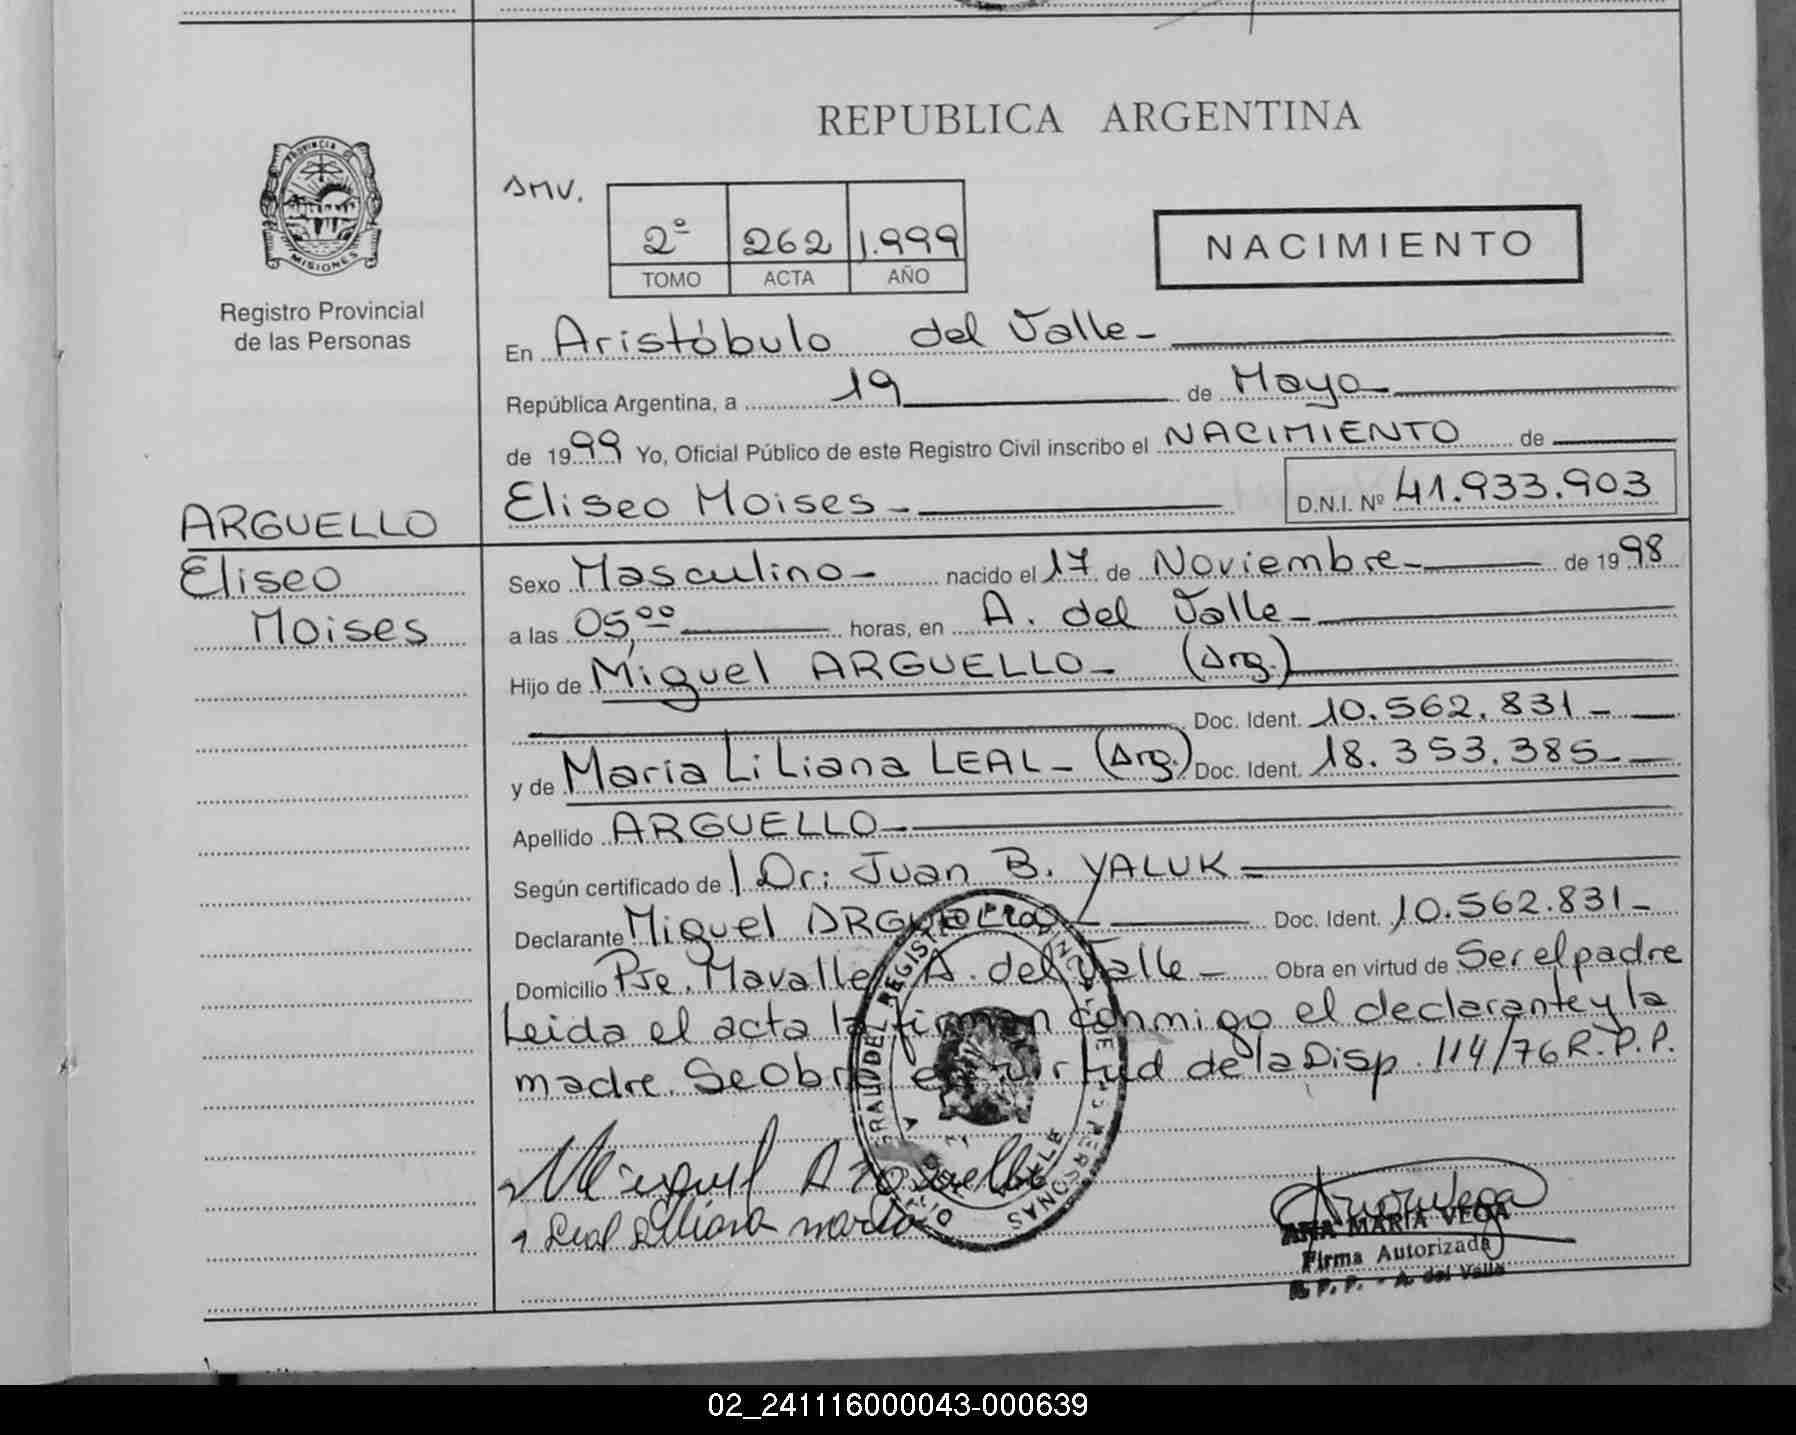 REPUBLICA ARGENTINA
PROVINCIA DE
MISIONES
Registro Provincial
de las Personas
AMV.
2º 262 1.999
TOMO ACTA AÑO
NACIMIENTO
En Aristóbulo del Valle-
República Argentina, a 19 de Mayo-
de 1999 Yo, Oficial Público de este Registro Civil inscribo el NACIMIENTO de
Eliseo Moises- D.N.I. Nº 41.933.903
ARGUELLO
Eliseo
Moises
Sexo Masculino- nacido el 17 de Noviembre- de 1998
a las 05,00 horas, en A. del Valle-
Hijo de Miguel ARGUELLO- (Arg.)
Doc. Ident. 10.562.831-
y de Maria Liliana LEAL- (Arg.) Doc. Ident. 18.353.385-
Apellido ARGUELLO-
Según certificado de Dr: Juan B. YALUK
Declarante Miguel ARGUELLO- Doc. Ident. 10.562.831-
Domicilio Pje. Mavalle A. del Valle- Obra en virtud de Ser el padre
Leida el acta la firman conmigo el declarante y la
madre. Se Obra en virtud de la Disp. 114/76 R.P.P.
Miguel Arguello
Leal Liliana maria
ANA MARIA VEGA
Firma Autorizada
R. P. P. - A. del Valle
02_241116000043-000639